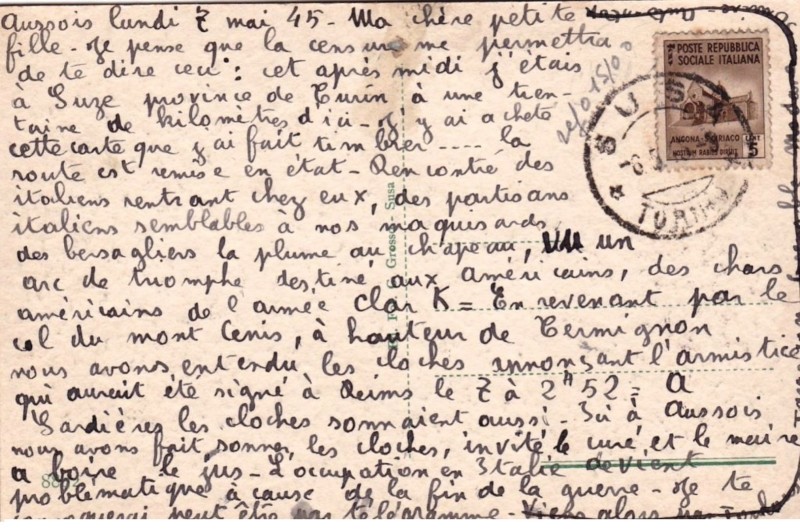 Aussois lundi 7 mai 45 - Ma chère petite
fille - Je pense que la censure me permettra
de te dire ceci : cet après midi j'étais
à Suze province de Turin à une tren-
taine de kilomètres d'ici - J'y ai acheté
cette carte que j'ai fait timbrer .... la
route est remise en état - Rencontré des
italiens rentrant chez eux, des partisans
italiens semblables à nos maquisards,
des bersagliers la plume au chapeau, vu un
arc de triomphe destiné aux américains, des chars
américains de l'armée Clark = En revenant par le
col du mont Cenis, à hauteur de Termignon
nous avons entendu les cloches annonçant l'armistice
qui aurait été signé à Reims le 7 à 2H52 = A
Sardières les cloches sonnaient aussi - Ici à Aussois
nous avons fait sonner les cloches, invité le curé et le maire
a boire le jus - L'occupation en Italie devient
problématique à cause de la fin de la guerre - Je te
peut être par télégramme - alors
POSTE REPUBBLICA
SOCIALE ITALIANA
ANCONA - S. CIRIACO
LIRE 5
HOSTIUM RABIES DIRUIT
SUSA
TORINO
Grosso - Susa